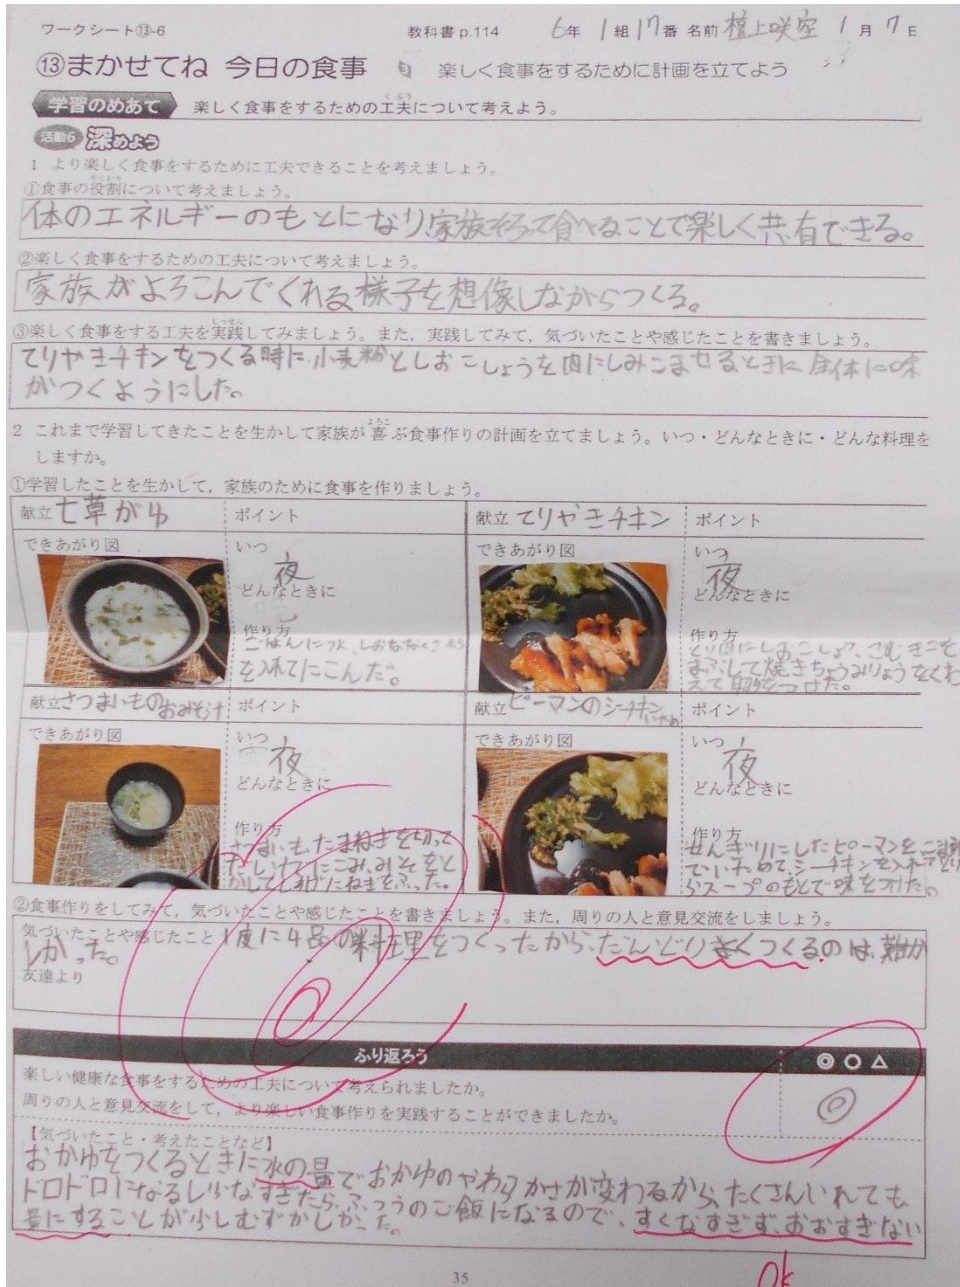 ワークシート⑬-6
教科書p.114
6年 1組17番 名前 檀上咲空 1月7日
⑬まかせてね 今日の食事 楽しく食事をするために計画を立てよう
学習のめあて 楽しく食事をするための工夫について考えよう。
活動6 深めよう
1 より楽しく食事をするために工夫できることを考えましょう。
①食事の役割について考えましょう。
体のエネルギーのもとになり、家族そろって食べることで楽しく共有できる。
②楽しく食事をするための工夫について考えましょう。
家族がよろこんでくれる様子を想像しながらつくる。
③楽しく食事をする工夫を実践してみましょう。また，実践してみて，気づいたことや感じたことを書きましょう。
てりやきチキンをつくる時に小麦粉としおこしょうを肉にしみこませるときに、全体に味
がつくようにした。
2 これまで学習してきたことを生かして家族が喜ぶ食事作りの計画を立てましょう。いつ・どんなときに・どんな料理を
しますか。
①学習したことを生かして，家族のために食事を作りましょう。
献立 七草がゆ
ポイント
できあがり図
いつ
夜
どんなときに
作り方
ごはんに水、しお
を入れてにこんだ。
献立 てりやきチキン
ポイント
できあがり図
いつ
夜
どんなときに
作り方
とり肉にしおこしょう、こむぎこを
まぶして焼きちょうみりょうをくわ
えて
献立 さつまいものおみそ汁
ポイント
できあがり図
いつ
夜
どんなときに
作り方
さつまいもたまねぎを切って
だし汁でにこみ、みそをと
かして
献立 ピーマンのシーチキンいため
ポイント
できあがり図
いつ
夜
どんなときに
作り方
せんぎりにしたピーマンをごま油
でいためて、シーチキンを入れてとり
がらスープのもとで味をつけた。
②食事作りをしてみて，気づいたことや感じたことを書きましょう。また，周りの人と意見交流をしましょう。
気づいたことや感じたこと 1度に4品の料理をつくったから、だんどりよくつくるのは、難か
しかった。
友達より
ふり返ろう
◎ ○ △
楽しい健康な食事をするための工夫について考えられましたか。
周りの人と意見交流をして，より楽しい食事作りを実践することができましたか。
◎
【気づいたこと・考えたことなど】
おかゆをつくるときに水の量でおかゆのやわらかさが変わるから、たくさんいれても
ドロドロになるしすくなすぎたら、ふつうのご飯になるので、すくなすぎず、おおすぎない
量にすることが少しむずかしかった。
ok
35